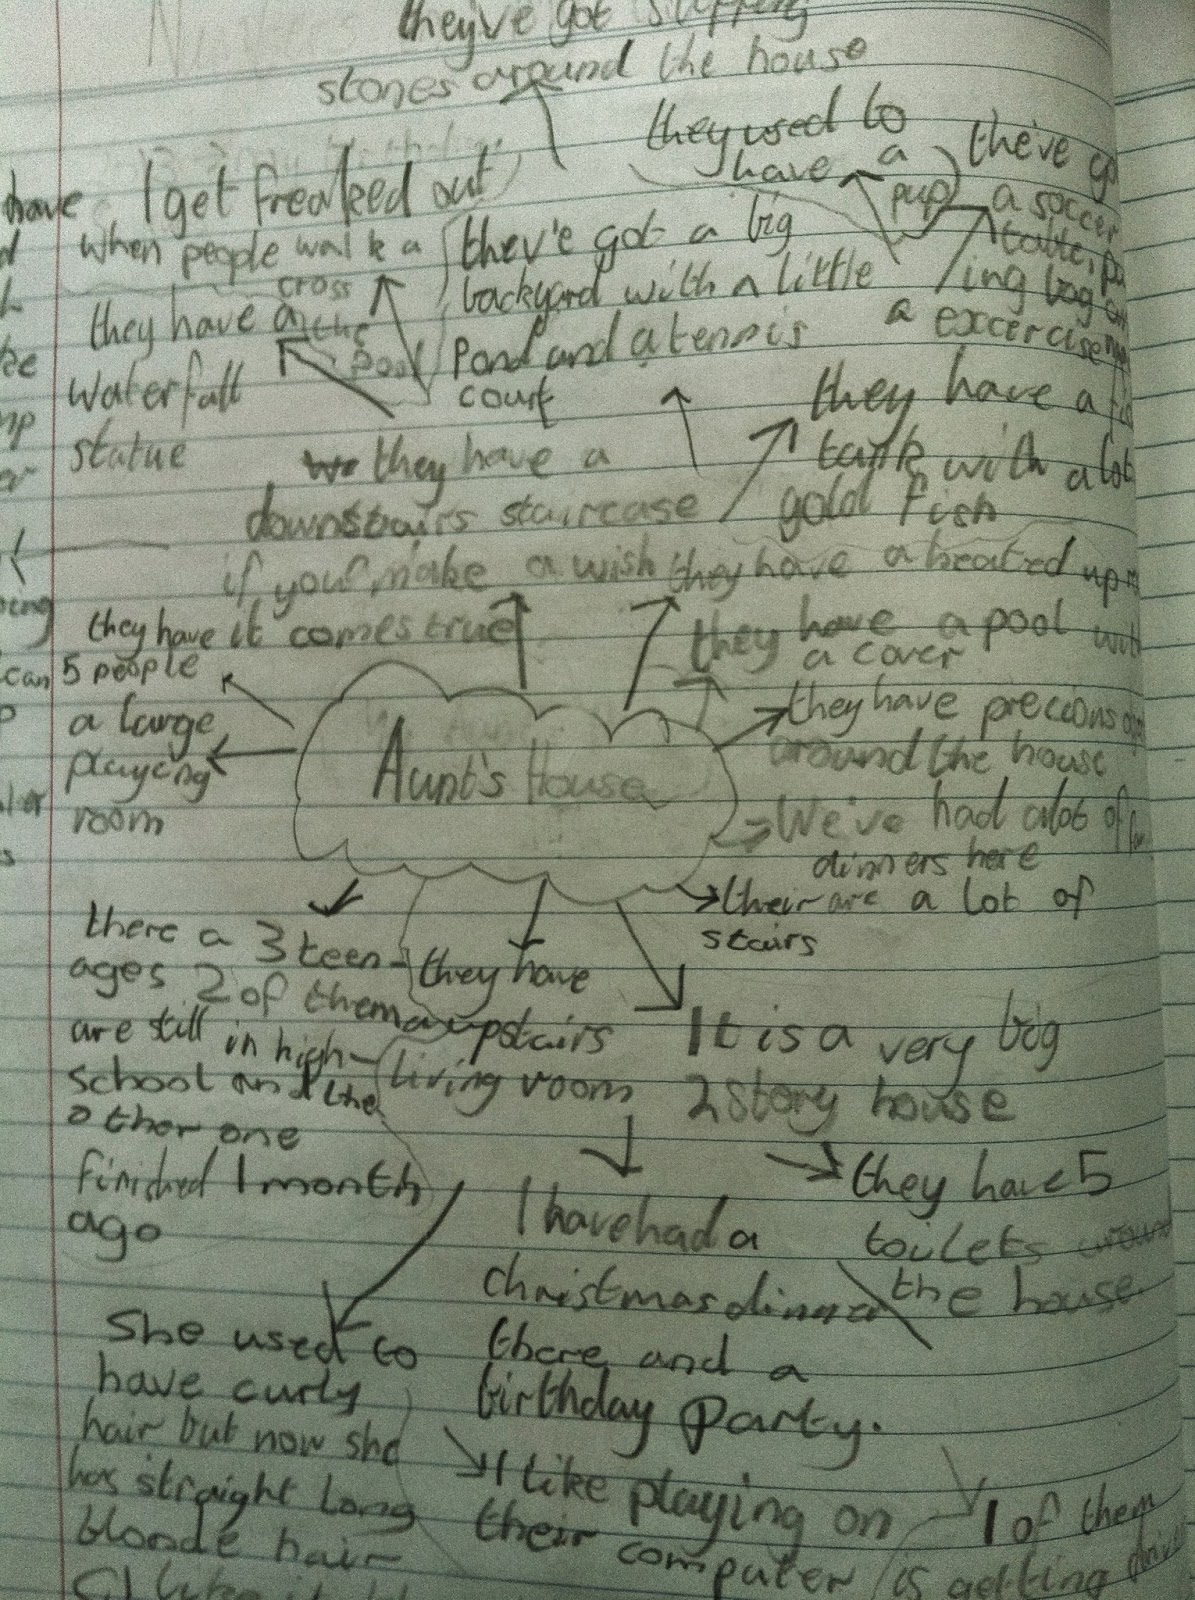 they've got stepping
stones around the house
they used to
have a
pup
the've
a soccer
table,
ing bag
a excercise
have
I get freaked out
when people walk a
cross
the
pool
they've got a big
backyard with a little
Pond and a tennis
court
they have a
waterfall
statue
they have a
tank with a lot
gold fish
they have a
downstairs staircase
if you make a wish
it comes true
they have a heated up
they have a pool
a cover
they have
5 people
can
a large
playing
room
Aunt's House
they have precious
around the house
We've had alot of
dinners here
their are a lot of
stairs
there a 3 teen-
ages 2 of them
are still in high-
school and the
other one
finished 1 month
ago
they have
a upstairs
living room
It is a very big
2 story house
they have 5
toilets around
the house
I have had a
christmas dinner
there and a
birthday party.
She used to
have curly
hair but now she
has straight long
blonde hair
I like playing on
their computer
1 of them
is getting